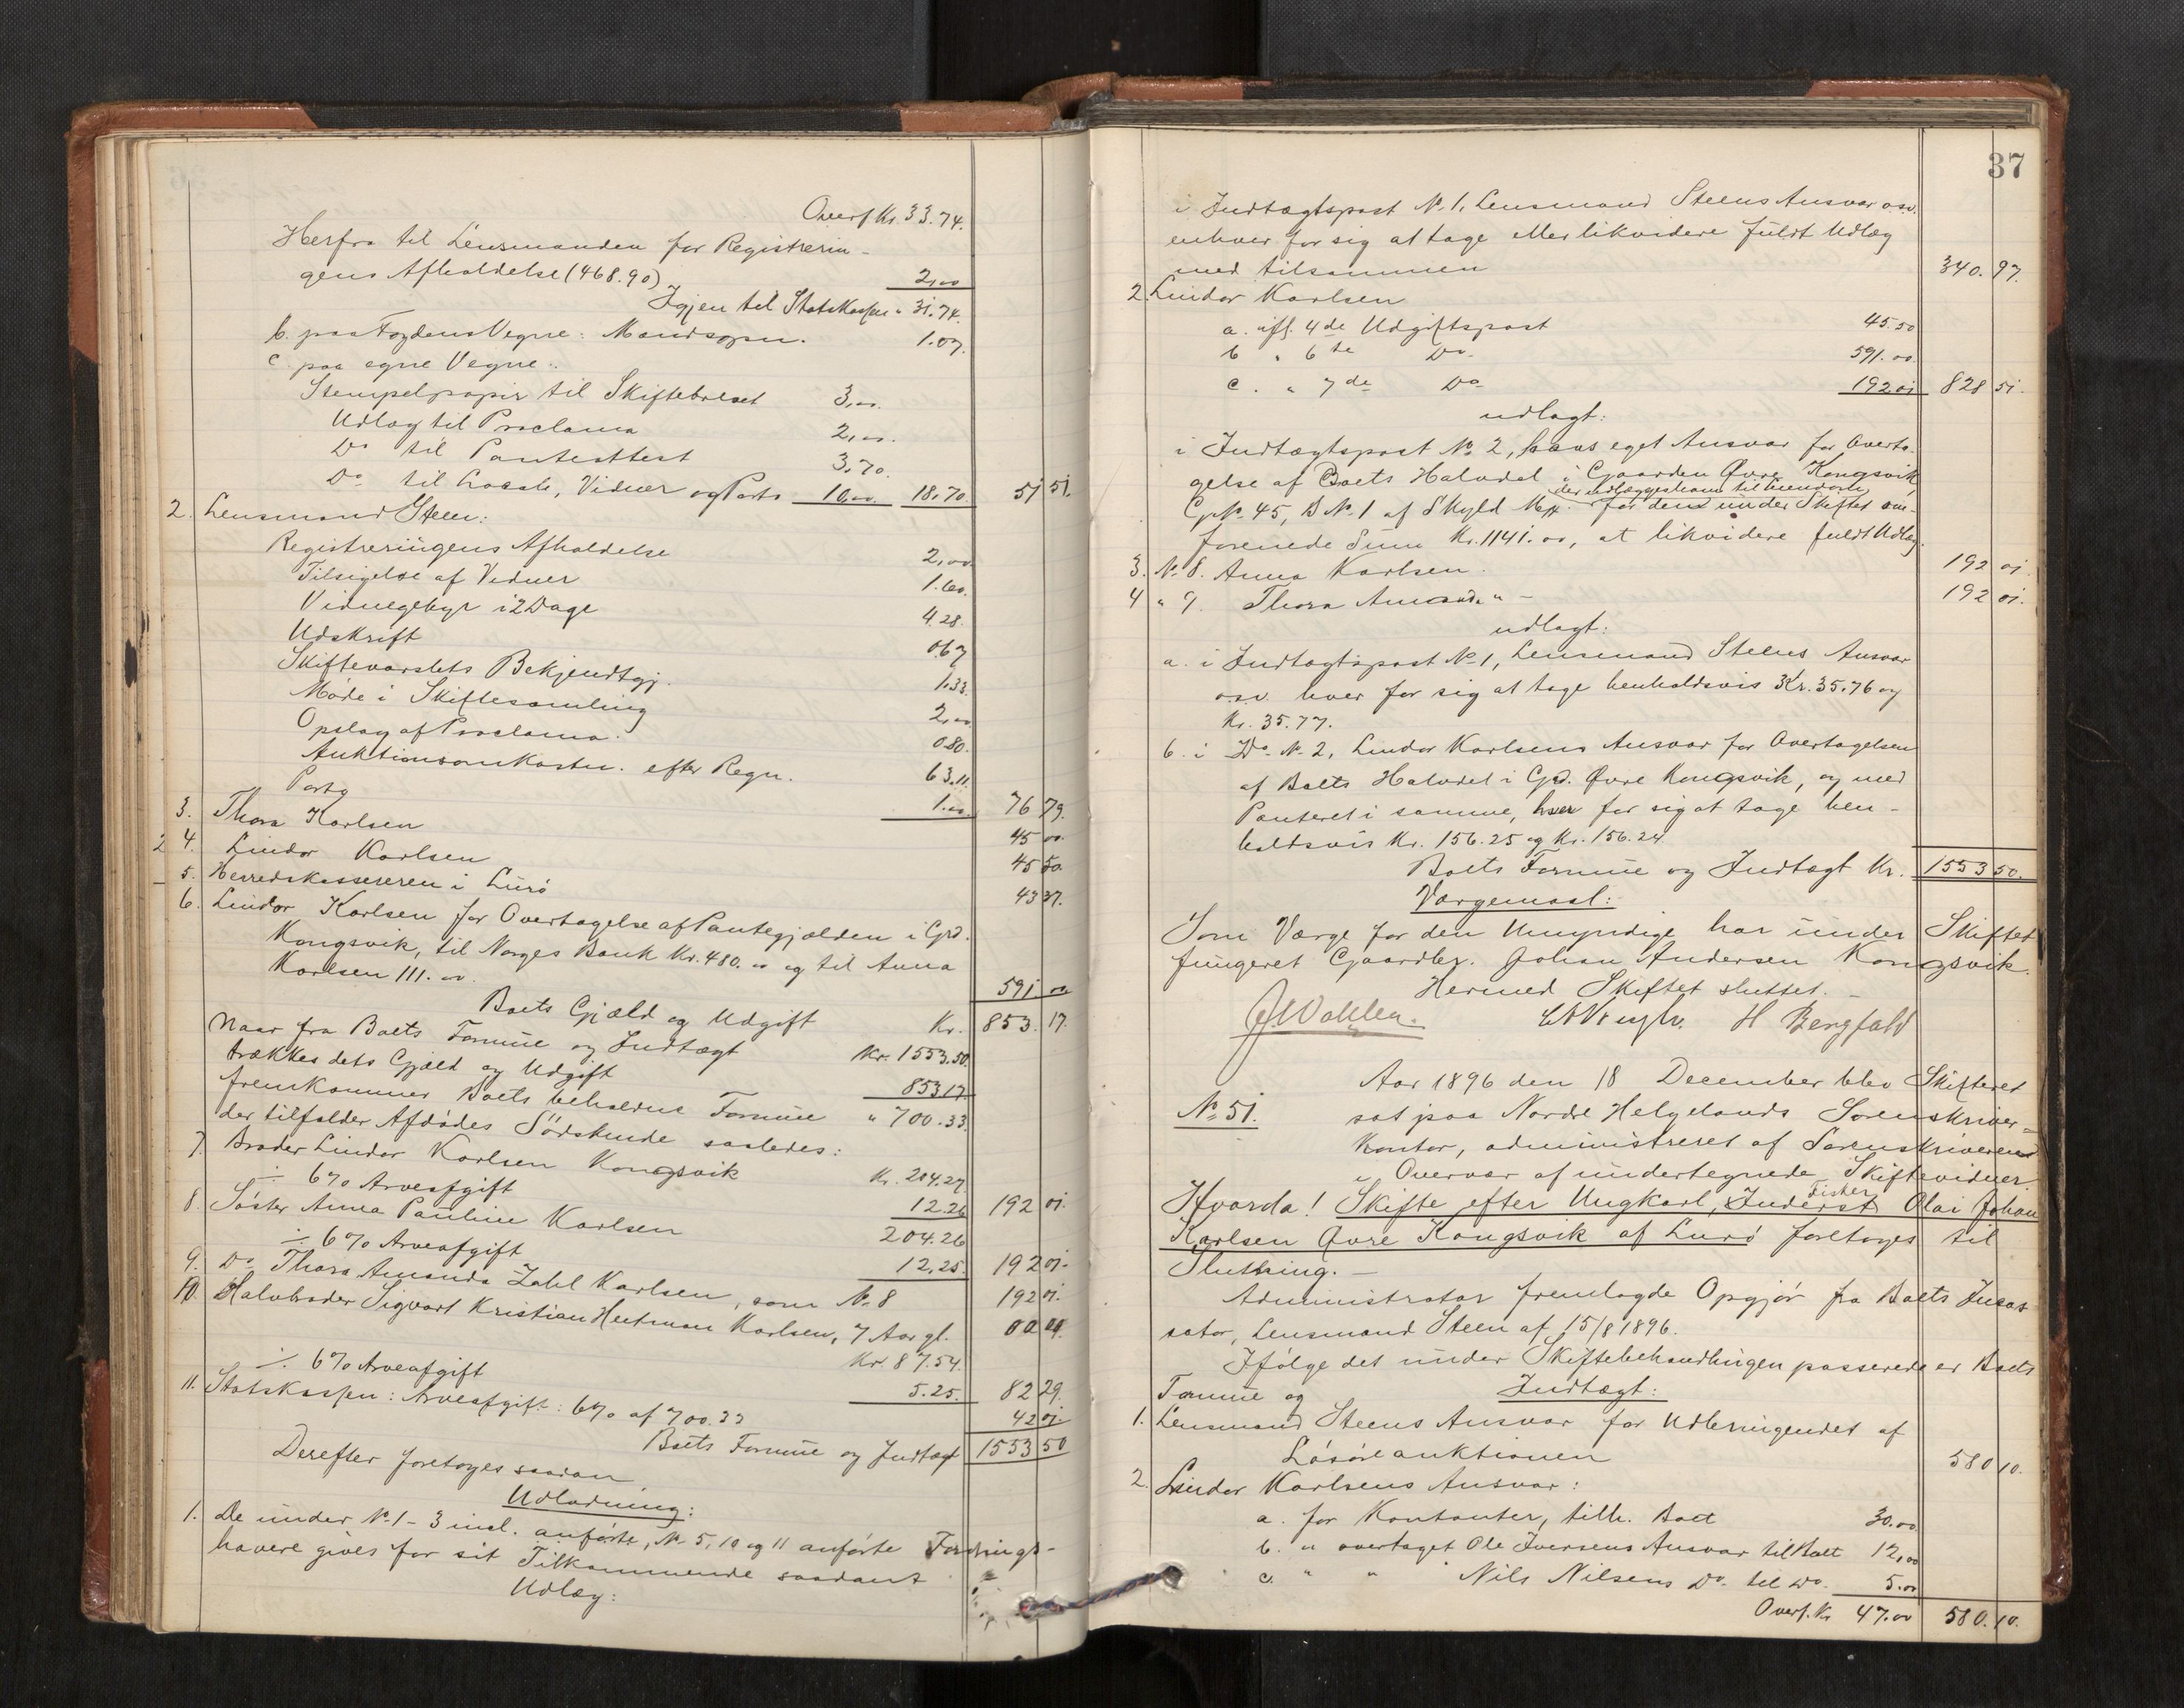 Overf. Kr. 33.74.
Herfra til Lensmanden for Registrerin-
gens Afholdelse (468.90) 2,00
Igjen til Statskassen " 31.74.
b. paa Fogdens Vegne: Mandsopn. 1.07.
c. paa egne Vegne:
Stempelpapir til Skiftebrevet 3,00.
Udlæg til Proclama 2,00.
Do til Panteattest 3.70.
Do til Lokale, Vidner og Porto 10,00. 18.70. 51 51.
2. Lensmand Steen:
Registreringens Afholdelse 2,00.
Tilsigelse af Vidner 1.60.
Vidnegebyr i 2 Dage 4.28.
Udskrift 0.67
Skiftevarslets Bekjendtgj. 1.33.
Møde i Skiftesamling 2,00
Opslag af Proclama. 0.80.
Auktionsomkostn. efter Regn. 63.11.
Porto 1.00. 76 79.
3. Thora Karlsen 45 00.
2 4. Lindor Karlsen 45 50.
5. Herredskassereren i Lurø 43 37.
6. Lindor Karlsen for Overtagelse af Pantegjælden i Grd.
Kongsvik, til Norges Bank Kr. 480.00 og til Anna
Karlsen 111.00. 591 00
Boets Gjæld og Udgift Kr. 853. 17.
Naar fra Boets Formue og Indtægt Kr. 1553.50
trækkes dets Gjæld og Udgift 853 17.
fremkommer Boets beholdne Formue " 700.33.
der tilfalder Afdødes Södskende saaledes:
7. Broder Lindor Karlsen Kongsvik Kr. 204.27.
÷ 6% Arveafgift 12.26 192 01.
8. Søster Anna Pauline Karlsen 204.26
÷ 6% Arveafgift 12.25. 192 01.
9. Do Thora Amanda Zahl Karlsen, som No 8 192 01.
10. Halvbroder Sigvart Kristian Hartman Karlsen, 7 Aar gl. 00 00.
Kr. 87.54.
÷ 6% Arveafgift 5.25. 82 29.
11. Statskassen: Arveafgift: 6% af 700.33 42 01.
Boets Formue og Indtægt 1553 50
Derefter foretoges saadan
Udlodning:
1. De under No 1-3 incl. anførte, No 5, 10 og 11 anførte Fordrings-
havere gives for sit Tilkommende saadant
Udlæg:
37
i Indtægtspost No 1, Lensmand Steens Ansvar osv.
enhver for sig at tage eller likvidere fuldt Udlæg
med tilsammen 340. 97.
2. Lindor Karlsen
a. ifl. 4de Udgiftspost 45.50
b " 6te Do. 591.00.
c. " 7de Do 192 01 828 51.
udlagt:
i Indtægtspost No 2, hans eget Ansvar for Overta-
gelse af Boets Halvdel i Gaarden Øvre Kongsvik,
der udlægges ham til Eiendom
G No. 45, B No. 1 af Skyld Mk. for den under Skiftet om-
forenede Sum Kr. 1141.00, at likvidere fuldt Udlæg.
3. No 8. Anna Karlsen. 192 01.
4 " 9. Thora Amanda " - 192 01.
udlagt:
a. i Indtægtspost No 1, Lensmand Steens Ansvar
o.s.v. hver for sig at tage henholdsvis Kr. 35.76 og
Kr. 35.77.
b. i Do. No 2, Lindor Karlsens Ansvar for Overtagelsen
af Boets Halvdel i Grd. Øvre Kongsvik, og med
Panteret i samme, hver for sig at tage hen-
holdsvis Kr. 156.25 og Kr. 156.24
Boets Formue og Indtægt Kr. 1553 50.
Værgemaal:
Som Værge for den Umyndige har under Skiftet
fungeret Gaardbr. Johan Andersen Kongsvik.
Hermed Skiftet sluttet. -
H Bergfald
Aar 1896 den 18 December blev Skifteret
No 51. sat paa Nordre Helgelands Sorenskriver-
kontor, administreret af Sorenskriveren
i Overvær af undertegnede Skiftevidner.
Fisker
Hvorda! Skifte efter Ungkarl, Inderst Olai Johan
Karlsen Øvre Kongsvik af Lurø foretoges til
Slutning. -
Administrator fremlagde Opgjør fra Boets Incas
sator, Lensmand Steen af 15/8 1896.
Ifølge det under Skiftebehandlingen passerede er Boets
Formue og Indtægt:
1. Lensmand Steens Ansvar for Udbringendet af
Løsøreauktionen 580 10.
2. Lindor Karlsens Ansvar:
a. for Kontanter, tilh. Boet 30.00
b. " overtaget Ole Iversens Ansvar til Boet 12,00
c. " " Nils Nilsens Do. til Do. 5.00
Overf. Kr 47.00 580. 10.